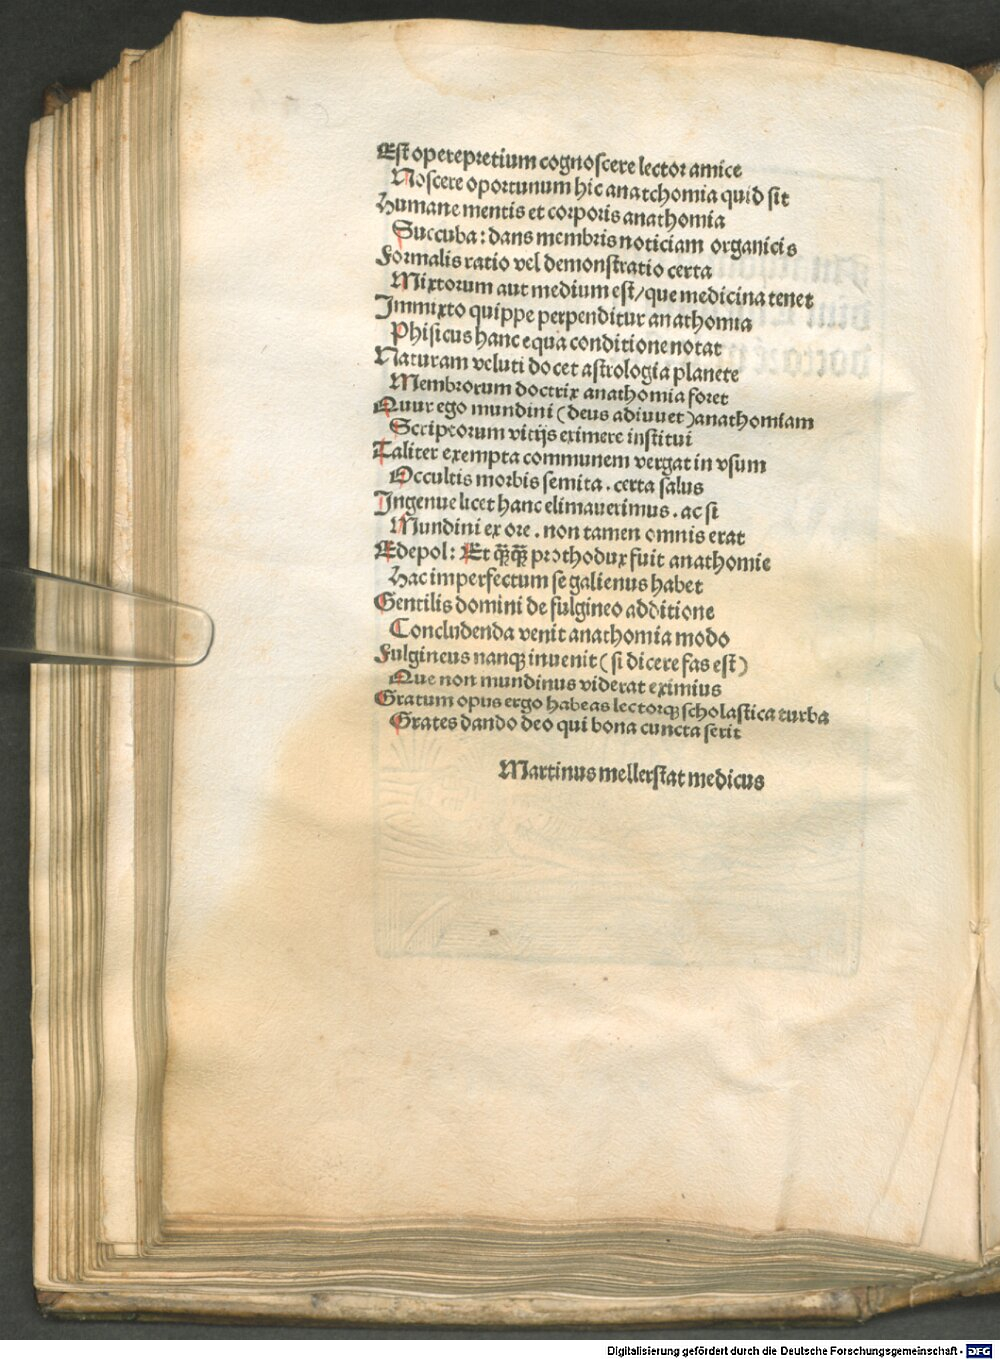 Est operepretium cognoscere lector amice
Noscere oportunum hic anatchomia quid sit
Humane mentis et corporis anathomia
Succuba: dans membris noticiam organicis
Formalis ratio vel demonstratio certa
Mixtorum aut medium est/que medicina tenet
Immixto quippe perpenditur anathomia
Phisicus hanc equa conditione notat
Naturam veluti docet astrologia planete
Membrorum doctrix anathomia foret
Quur ego mundini (deus adiuuet) anathomiam
Scriptorum vitijs eximere institui
Taliter exempta communem vergat in vsum
Occultis morbis semita. certa salus
Ingenue licet hanc elimauerimus. ac si
Mundini ex ore. non tamen omnis erat
Edepol: Et q̃q̃ prothodux fuit anathomie
Hac imperfectum se galienus habet
Gentilis domini de fulgineo additione
Concludenda venit anathomia modo
Fulgineus nanqꝫ inuenit (si dicere fas est)
Que non mundinus viderat eximius
Gratum opus ergo habeas lectorqꝫ scholastica turba
Grates dando deo qui bona cuncta serit
Martinus mellerstat medicus
Digitalisierung gefördert durch die Deutsche Forschungsgemeinschaft - DFG